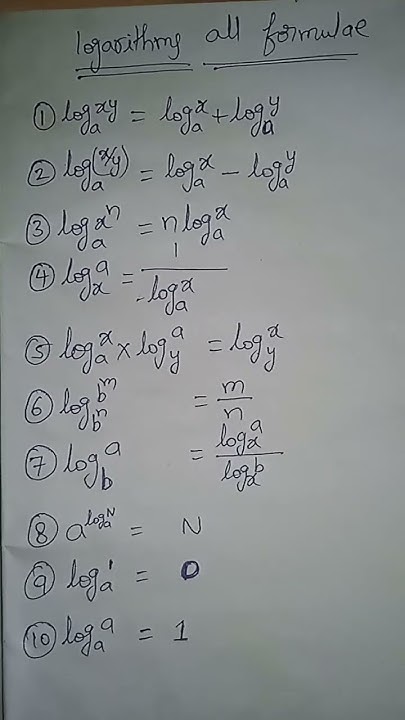 logarithms all formulae
① log_a^{xy} = log_a^x + log_a^y
② log_a^{(x/y)} = log_a^x - log_a^y
③ log_a x^n = n log_a^x
④ log_x^a = 1/log_a^x
⑤ log_a^x × log_y^a = log_y^x
⑥ log_{b^n} b^m = m/n
⑦ log_b^a = log_x^a/log_x^b
⑧ a^{log_a^N} = N
⑨ log_a^1 = 0
⑩ log_a^a = 1